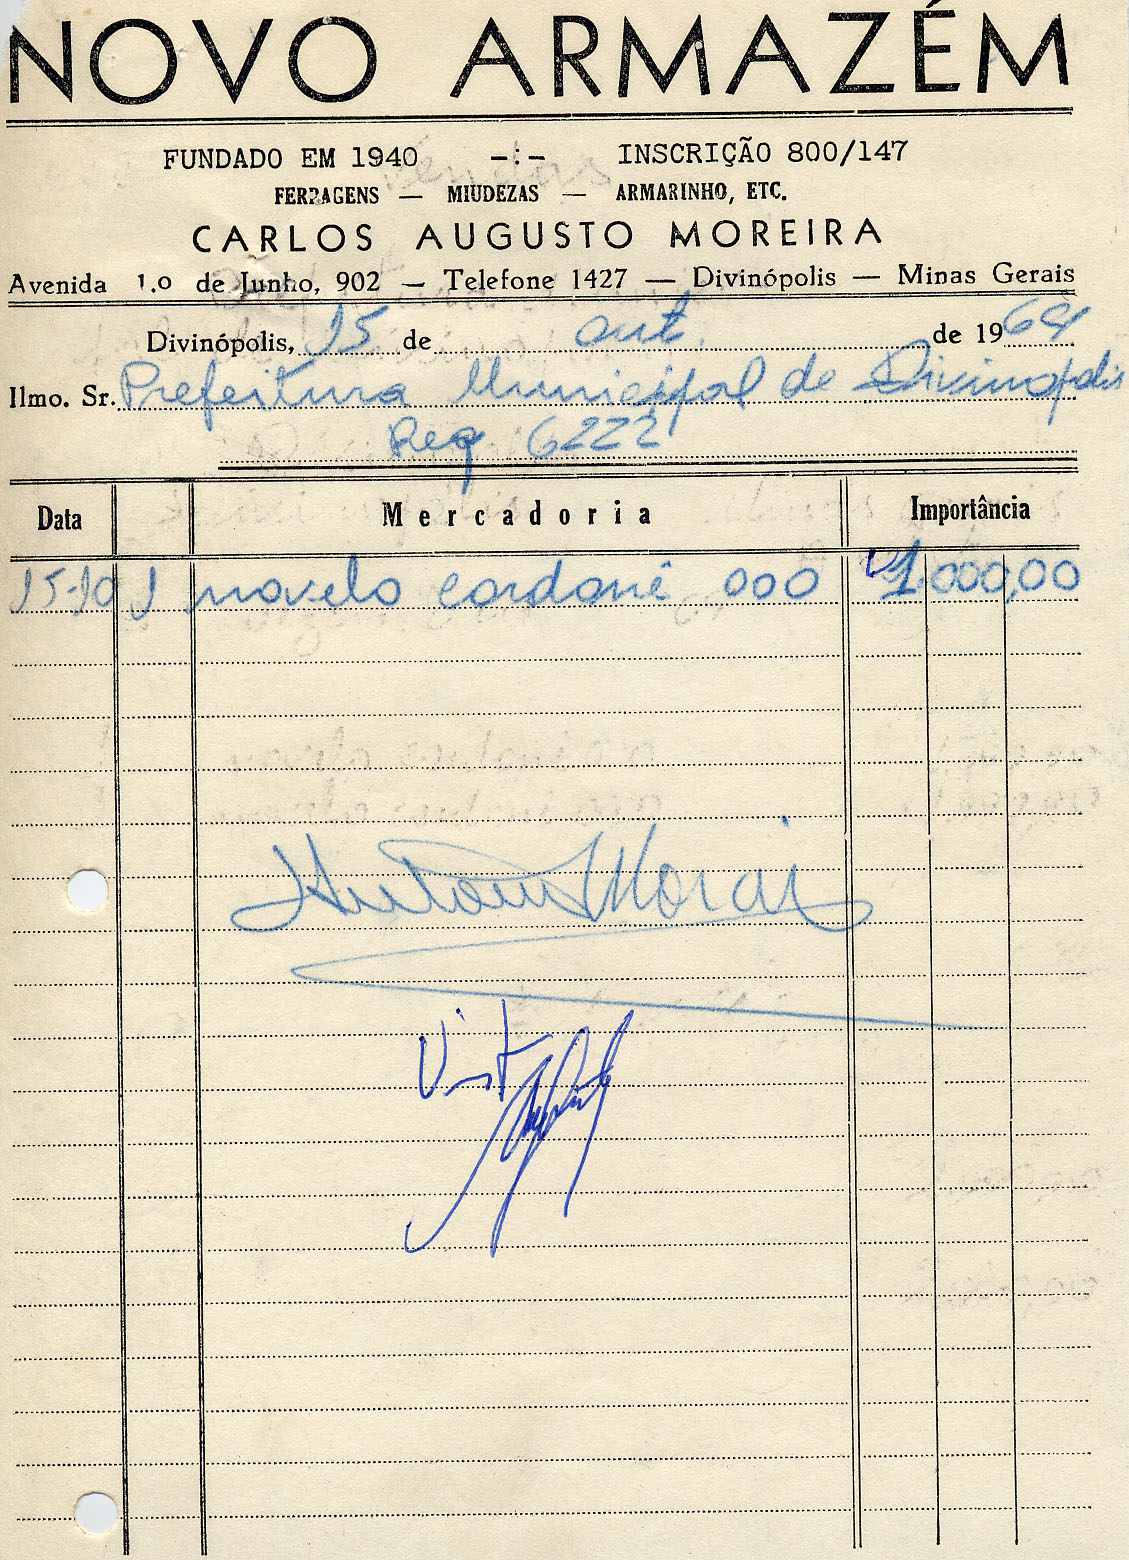 NOVO ARMAZÉM
FUNDADO EM 1940 -:- INSCRIÇÃO 800/147
FERRAGENS — MIUDEZAS — ARMARINHO, ETC.
CARLOS AUGUSTO MOREIRA
Avenida 1.o de Junho, 902 — Telefone 1427 — Divinópolis — Minas Gerais
Divinópolis, 15 de out. de 1964
Ilmo. Sr. Prefeitura Municipal de Divinopolis
Req 6222
Data Mercadoria Importância
15-10 1 novelo cordonê 000 1.000,00
Antonio Morais
Visto